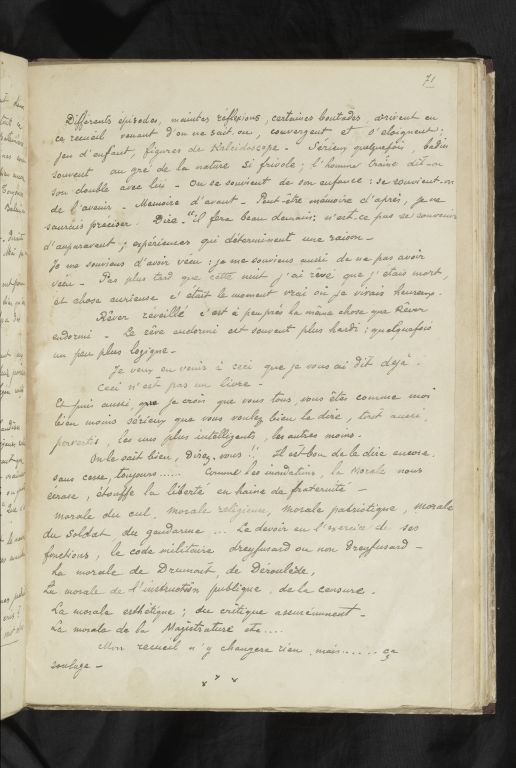 71
Différents épisodes, maintes réflexions, certaines boutades, arrivent en
ce recueil venant d'on ne sait où, convergent et s'éloignent;
jeu d'enfant, figures de Kaleidoscope - Sérieux quelquefois, badin
souvent au gré de la nature si frivole; l'homme traîne dit-on
son double avec lui - On se souvient de son enfance: se souvient-on
de l'avenir - Memoire d'avant - Peut-être mémoire d'après, je ne
saurais préciser. Dire "il fera beau demain; n'est ce pas se souvenir
d'auparavant; expériences qui déterminent une raison -
Je me souviens d'avoir vécu; je me souviens aussi de ne pas avoir
vécu - Pas plus tard que cette nuit j'ai rêvé que j'étais mort,
et chose curieuse c'était le moment vrai où je vivais heureux.
Rêver réveillé c'est à peu près la même chose que Rêver
endormi - Le rêve endormi est souvent plus hardi; quelquefois
un peu plus logique -
Je veux en venir à ceci que je vous ai dit déjà.
ceci n'est pas un livre -
Et puis aussi, que je crois que vous tous, vous êtes comme moi
bien moins sérieux que vous voulez bien le dire, tout aussi
pervertis, les uns plus intelligents, les autres moins.
On le sait bien, Direz vous!! Il est bon de le dire encore.
sans cesse, toujours..... Comme les inondations, la Morale nous
écrase, étouffe la liberté en haine de fraternité -
Morale du cul, morale religieuse, morale patriotique, morale
du Soldat, du gendarme ... Le devoir en l'exercice de ses
fonctions, le code militaire dreyfusard ou non dreyfusard -
La morale de Drumont, de Déroulède,
La morale de l'instruction publique, de la censure.
La morale esthétique; du critique assurémment -
La morale de la Magistrature etc....
Mon recueil n'y changera rien, mais...... ça
soulage -
* * *